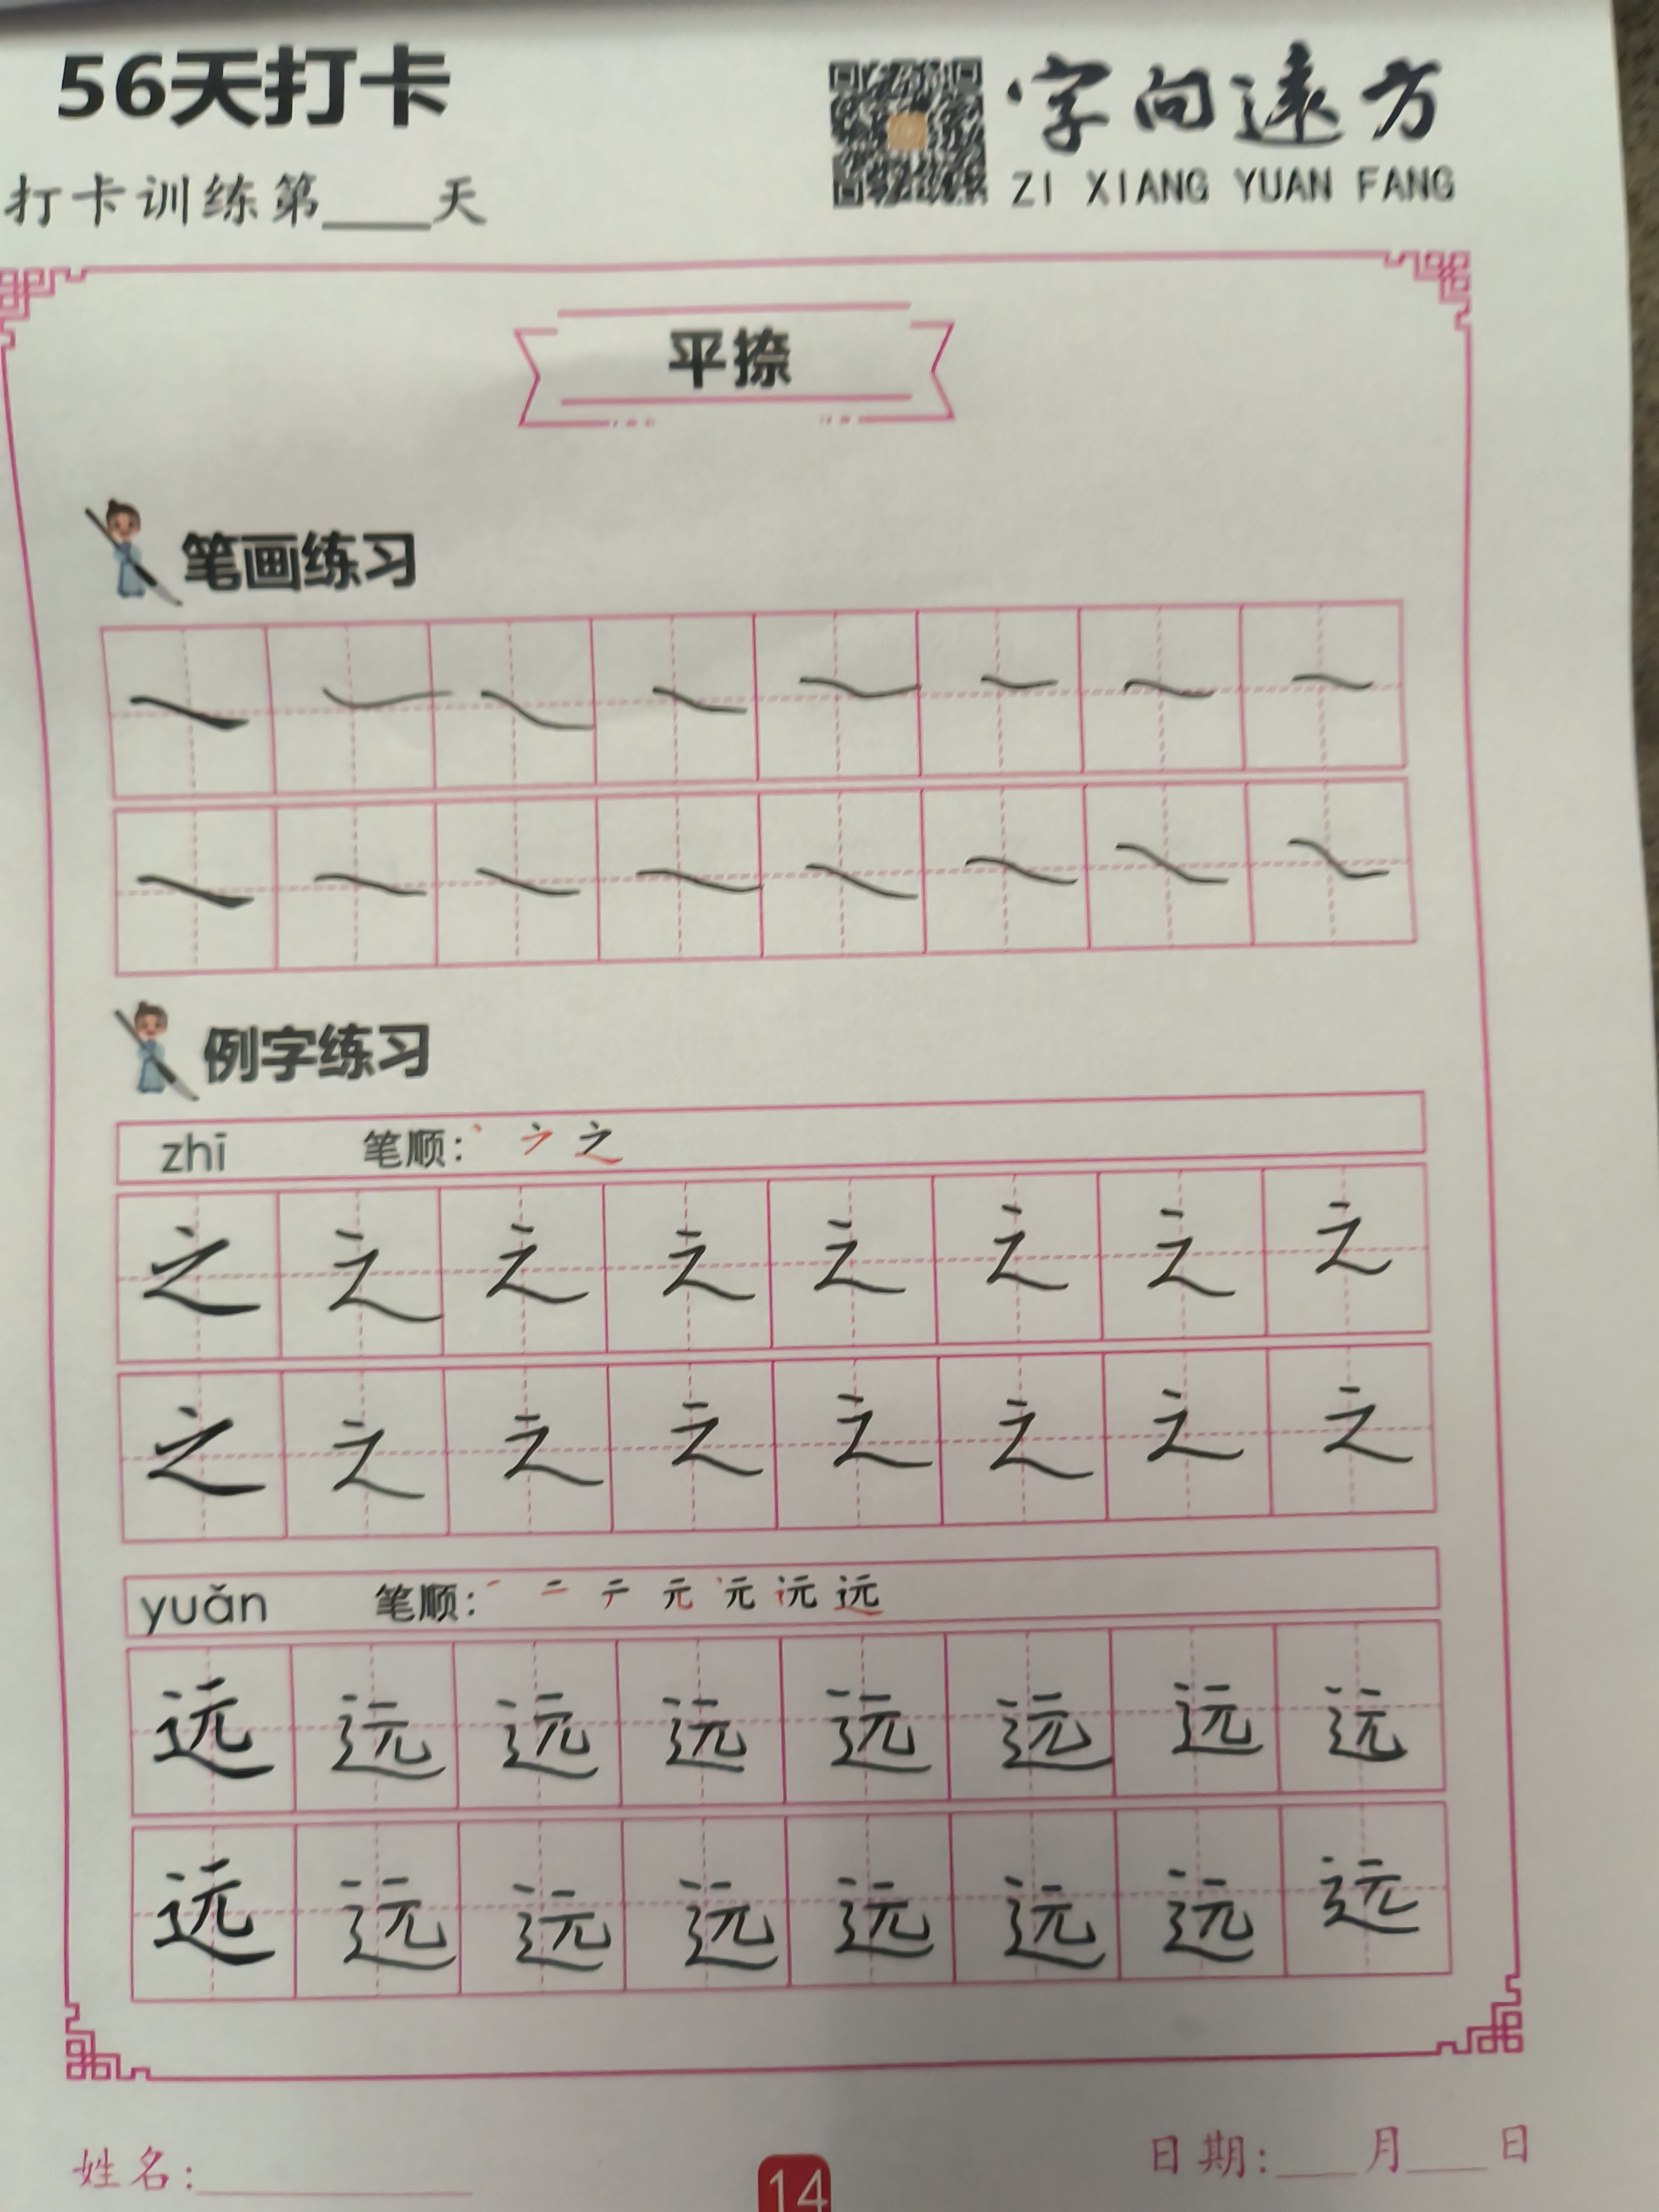 56天打卡
字向远方
打卡训练第____天
ZI XIANG YUAN FANG
平捺
笔画练习
例字练习
zhī 笔顺:
之 之 之 之 之 之 之 之
之 之 之 之 之 之 之 之
yuǎn 笔顺:
远 远 远 远 远 远 远 远
远 远 远 远 远 远 远 远
姓名:
14
日期:___月___日